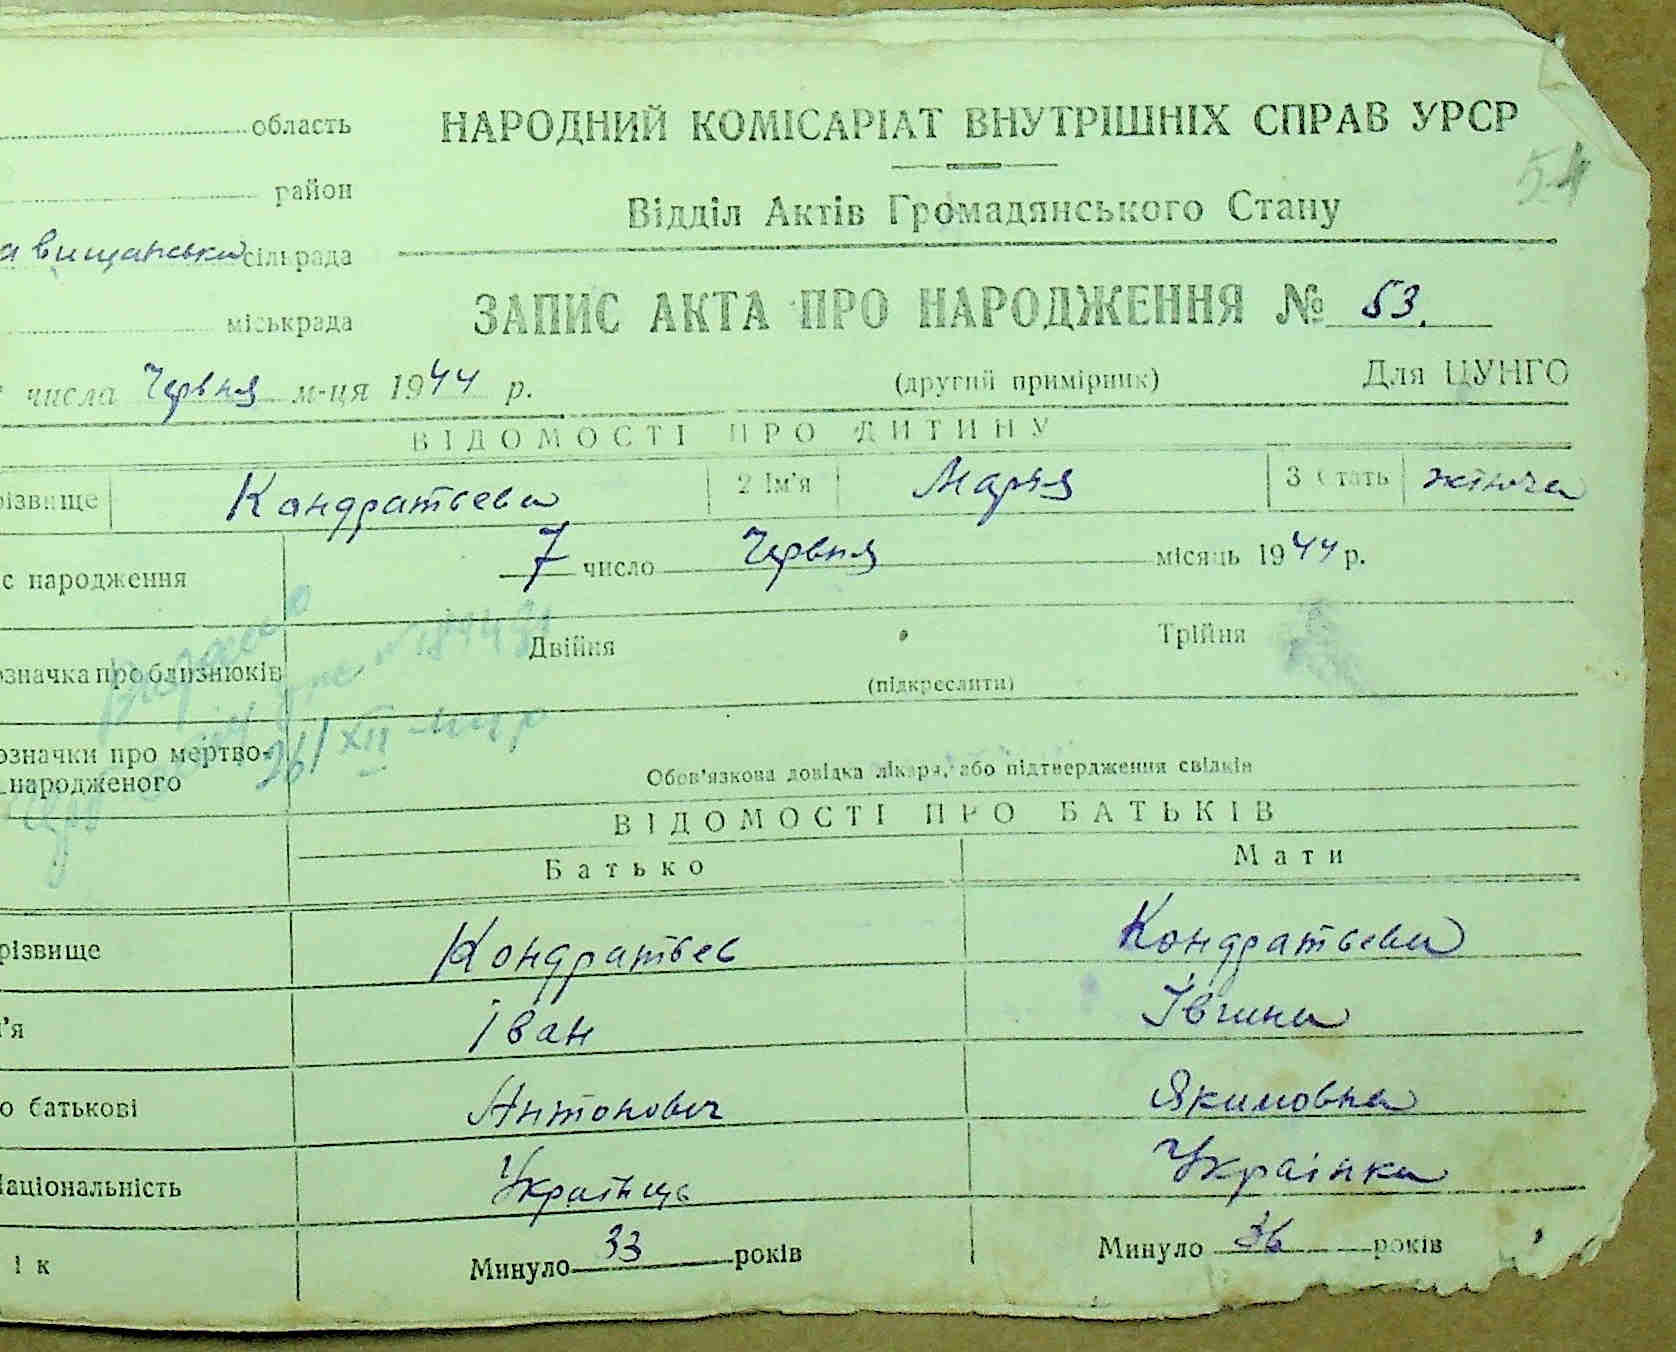 область
НАРОДНИЙ КОМІСАРІАТ ВНУТРІШНІХ СПРАВ УРСР
54
район
Відділ Актів Громадянського Стану
а вищанська сільрада
міськрада
ЗАПИС АКТА ПРО НАРОДЖЕННЯ № 53.
числа Червня м-ця 1944 р.
(другий примірник)
Для ЦУНГО
ВІДОМОСТІ ПРО ДИТИНУ
різвище Кондратьева 2 Ім'я Марія 3 Стать жіноча
с народження 7 число Червня місяць 1944 р.
означка про близнюків Двійня Трійня
(підкреслити)
означки про мертво-
народженого
26/XII-44 р
Обов'язкова довідка лікаря, або підтвердження свідків
ВІДОМОСТІ ПРО БАТЬКІВ
Батько Мати
різвище Кондратьев Кондратьева
м'я Іван Івгина
о батькові Антонович Якимовна
Національність Украінць Украінка
ік Минуло 33 років Минуло 36 років